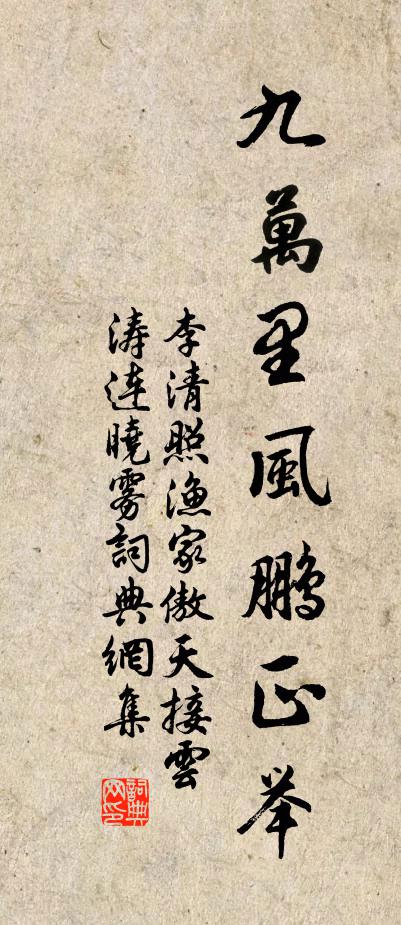 九萬里風鵬正举
李清照漁家傲天接雲
涛連曉雾詞典網集
詞典
网印